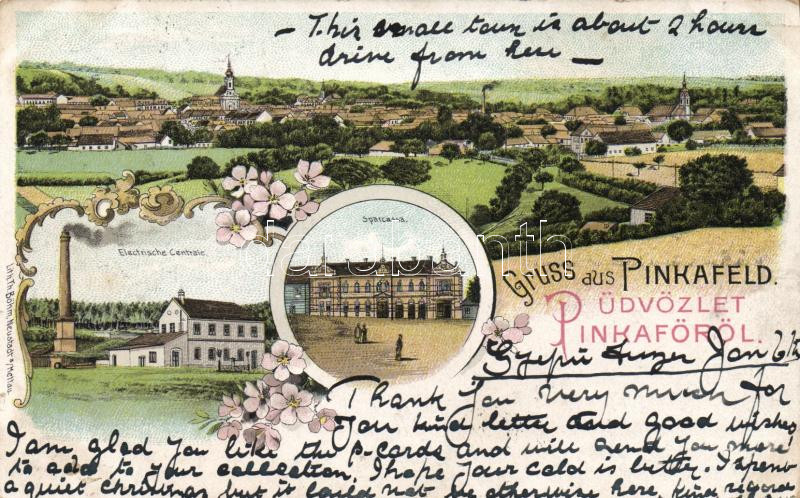 - This small town is about 2 hours
drive from here -
Electrische Centrale.
Sparcassa.
Gruss aus PINKAFELD.
ÜDVÖZLET
PINKAFŐRŐL.
Lith. Th. Böhm, Neustadt a/Mettau.
Jan 6/
Thank you very much for
you kind letter and good wishes
I am glad you like the p-cards and will send you more
to add to your collection. I hope your cold is better. I spent
a quiet christmas but it could not be otherwise here,